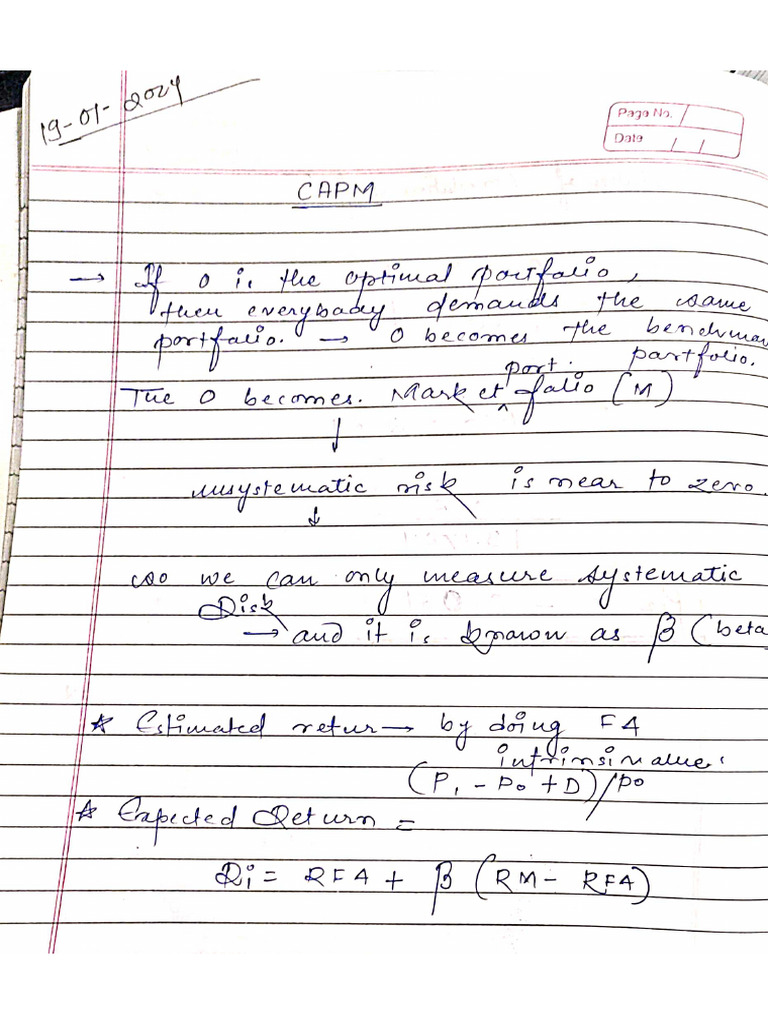 19-01-2024
Page No. /
Date / /
CAPM
→ If O is the optimal portfolio,
then everybody demands the same
portfolio. → O becomes the benchmar
portfolio.
The O becomes. Market portfolio (M)
↓
unsystematic risk is near to zero.
↓
so we can only measure systematic
Risk
→ and it is known as β (beta
* Estimated retur → by doing FA
intrinsi value:
(P1 - P0 + D)/P0
* Expected Return =
Ri = RFA + β (RM - RFA)